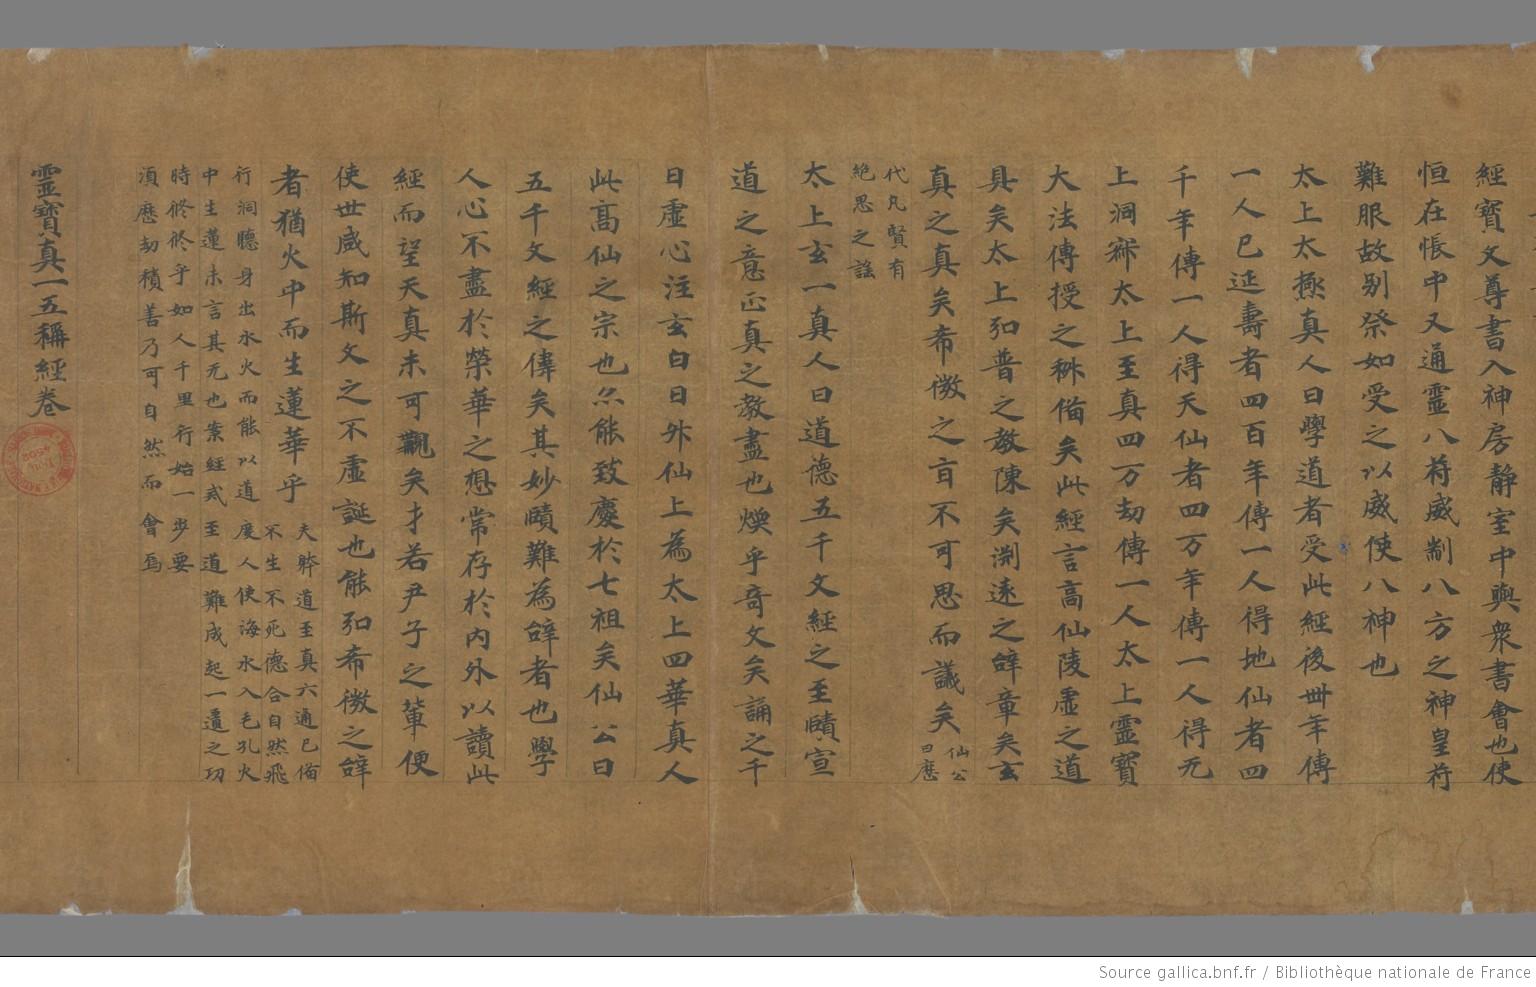 經寶文尊書入神房静室中與衆書會也使
恒在帳中又通靈八苻威制八方之神皇苻
難服故别祭如受之以威使八神也
太上太極真人曰學道者受此經後卌年傳
一人已延壽者四百年傳一人得地仙者四
千年傳一人得天仙者四万年傳一人得无
上洞寂太上至真四万劫傳一人太上靈寶
大法傳授之科俻矣此經言高仙陵虚之道
具矣太上弘普之教陳矣渕遠之辝章矣玄
真之真矣希微之盲不可思而議矣仙公曰歷
代凡賢有絶思之謡
太上玄一真人曰道德五千文經之至賾宣
道之意正真之教盡也煥乎奇文矣誦之千
日虚心注玄白日外仙上為太上四華真人
此高仙之宗也亦能致慶於七祖矣仙公曰
五千文經之偉矣其妙賾難為辝者也學
人心不盡於榮華之想常存於内外以讀此
經而望天真未可覩矣才若尹子之軰便
使世咸知斯文之不虚誕也能弘希微之辝
者猶火中而生蓮華乎夫幹道至真六通已俻不生不死德合自然飛
行洞聽身出水火而能以道度人使海水入毛孔火
中生蓮未言其无也案經或至道難成起一遺之功
時終終乎如人千里行始一步要
湏歷劫積善乃可自然而會焉
靈寶真一五稱經卷
Source gallica.bnf.fr / Bibliothèque nationale de France